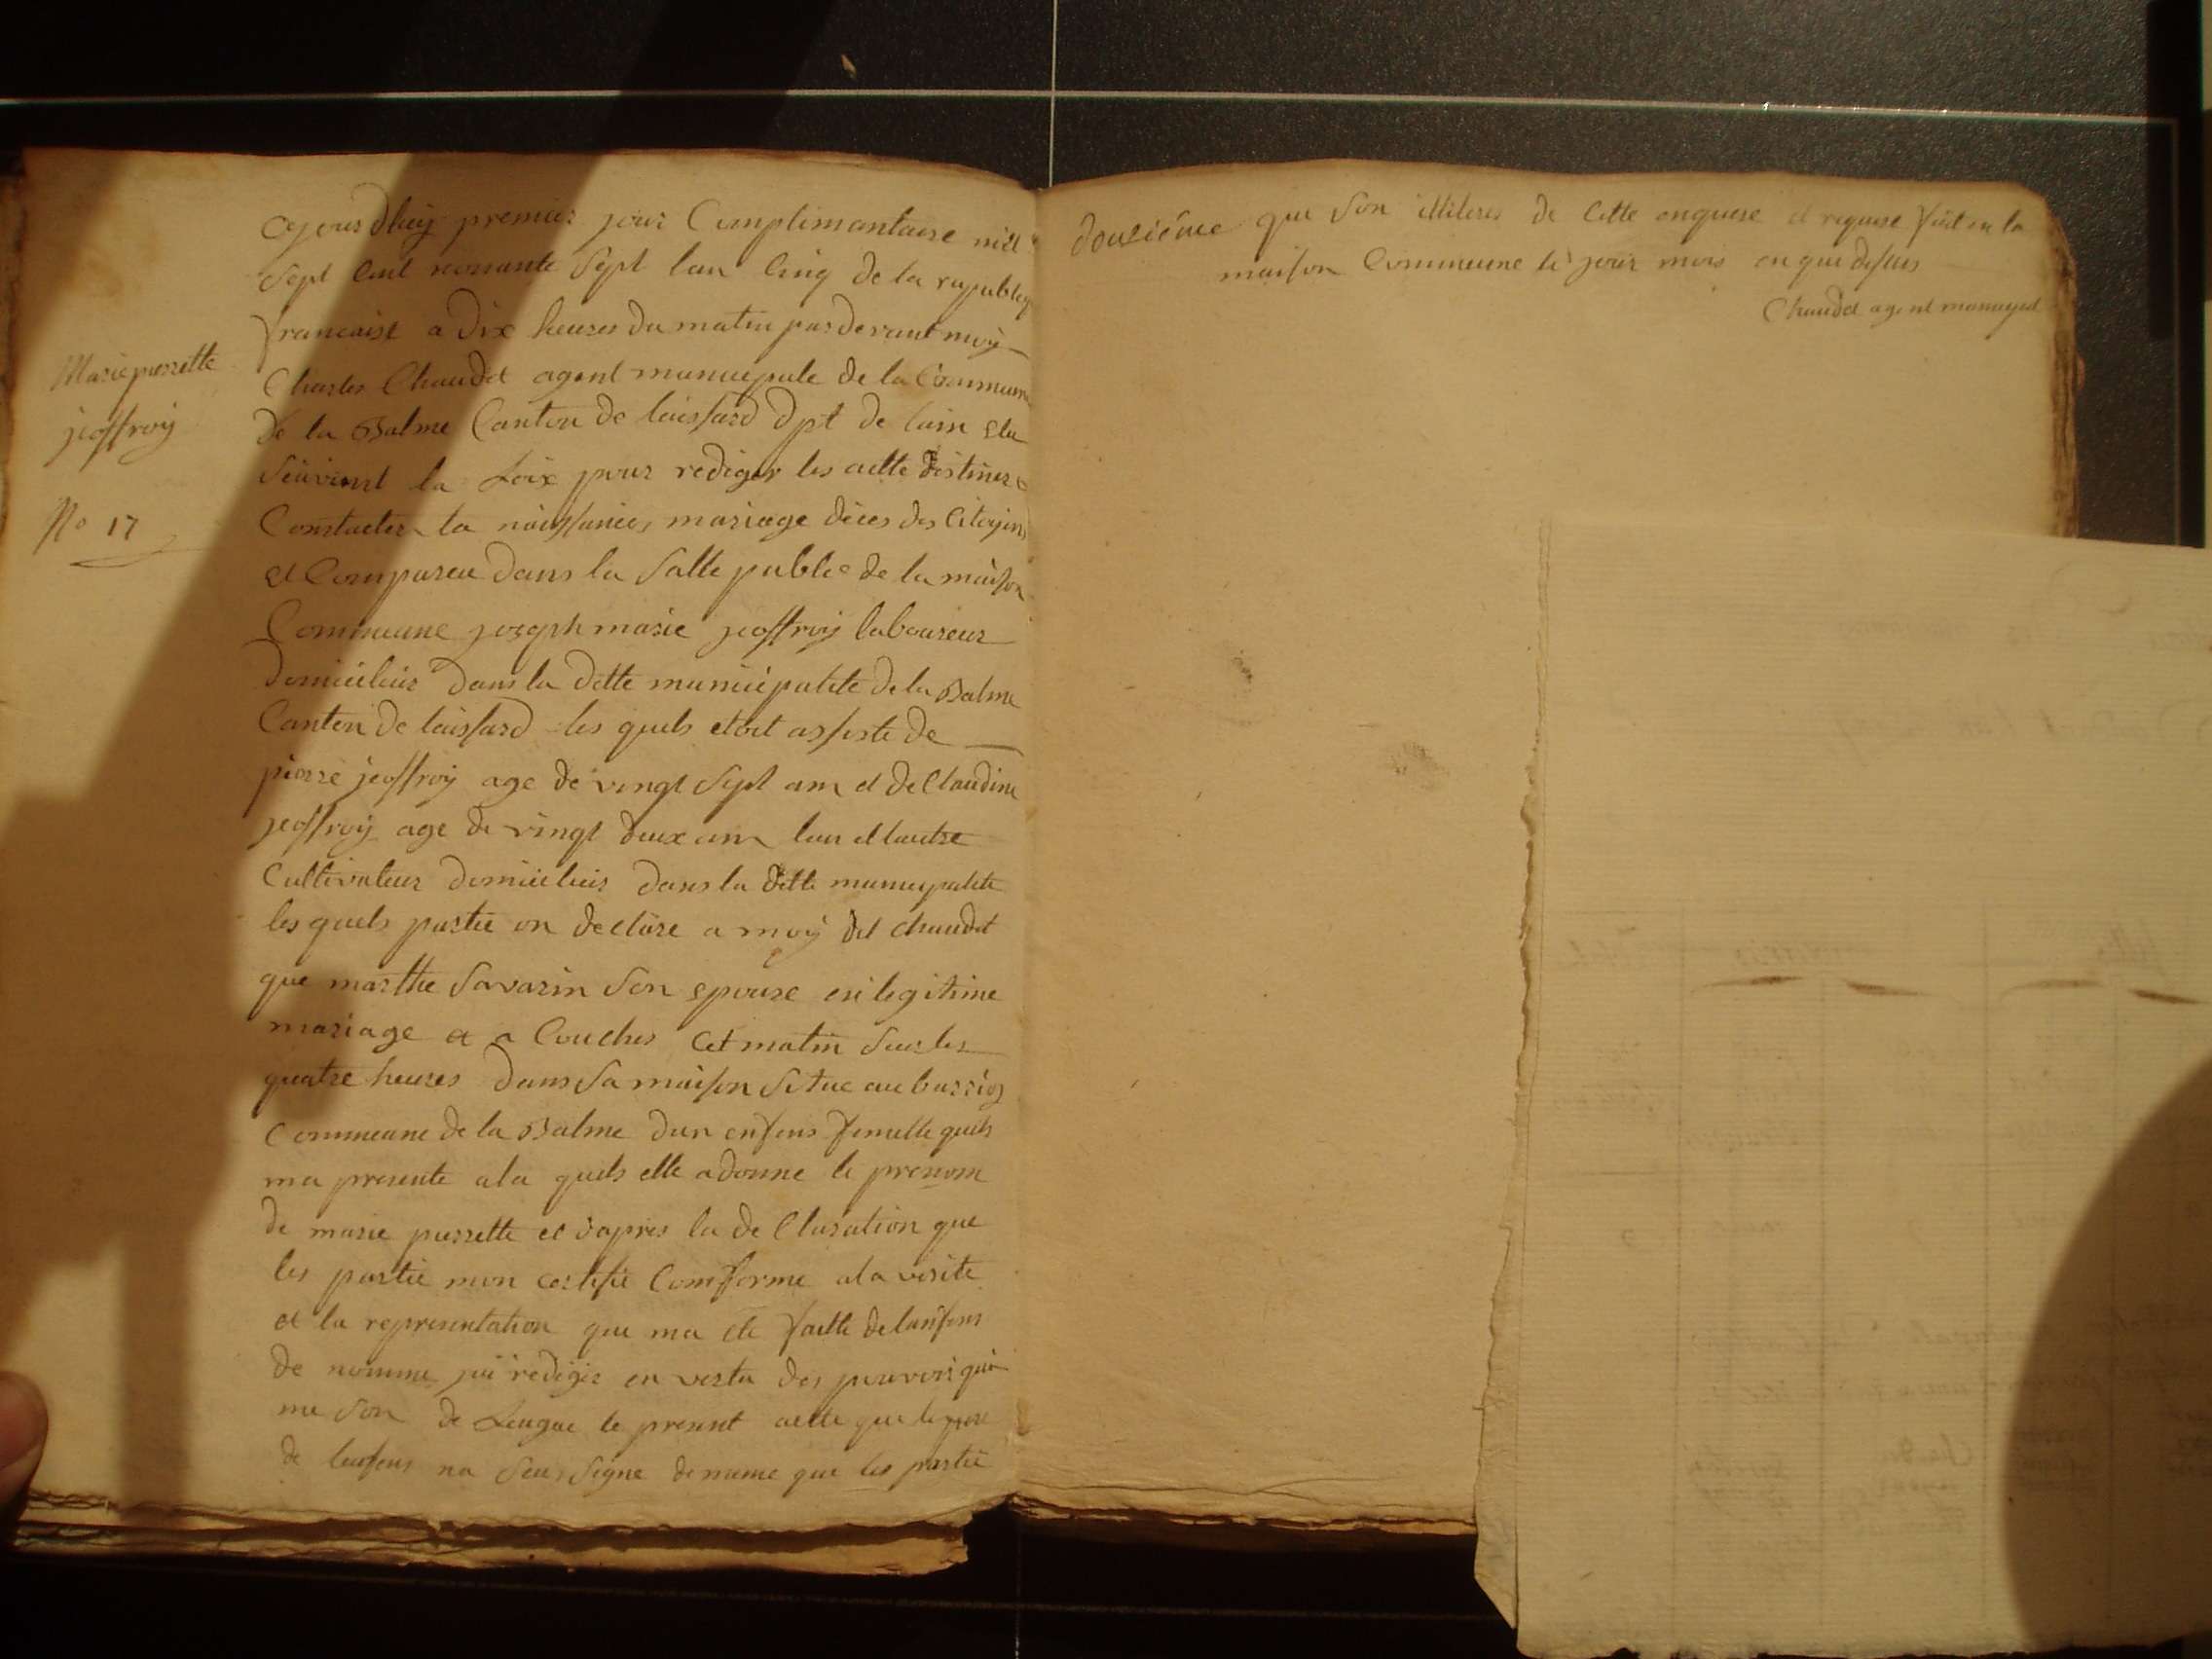 Marie pierrette
jeoffroy
No 17
Ojourdhuy premier jour Complimantaire mill
Sept Cent nonante Sept lan Cinq de la republiq
francaise a dix heures du matin pardevant moy
Charles Chaudet agent municipale de la Commune
de la Balme Canton de leissard dpt de lain elu
Suivant la Loix pour rediger les actte destiner a
Constacter la naissances, mariage déces des Citoyens
et Comparcu dans la Salle public de la maison
Commeune joseph marie jeoffroy laboureur
domicilier dans la ditte municipalite de la Balme
Canton de leissard les quels etoit assiste de
pierre jeoffroy age de vingt Sept ans et de Claudine
jeoffroy age de vingt deux ans lun et lautre
Cultivateur domiciliez dans la ditte municipalite
les quels partie on declare a moy dit chaudet
que marthe Savarin Son epouse en legitime
mariage et a Couches Cet matin Sur les
quatre heures dans Sa maison Situe au
Commeune de la Balme dun enfens femelle quels
ma presente ala quels elle a donne le prenom
de marie pierrette et dapres la de Claration que
les partie mon certifie Comforme ala verite
et la representation que ma ete faitte de lanfens
de nomme jai rediger en vertu des pouvoir qui
me Son de Leugue le present actte que le pere
de lenfens na Seu Signe de meme que les partie
douzieme que Son illiteres de Cette enquere et requere fait en la
maison Commeune le jour mois en que desus
Chaudet agent municipal